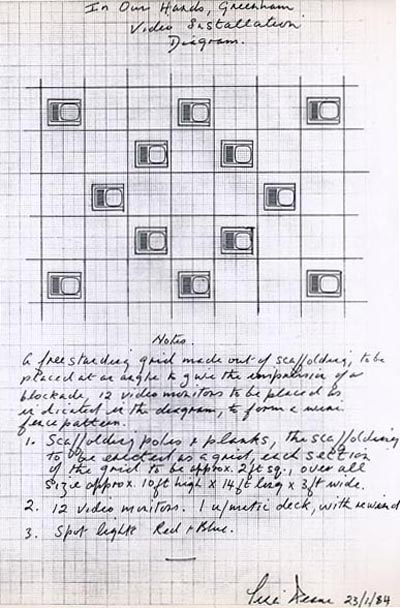 In Our Hands, Greenham
Video Installation
Diagram.
Notes
A free standing grid made out of scaffolding, to be
placed at an angle to give the impression of a
blockade. 12 video monitors to be placed as
indicated in the diagram, to form a wire
fence pattern.
1. Scaffolding poles + planks, the scaffolding
to be erected as a grid, each section
of the grid to be approx. 2ft sq., over all
size approx. 10ft high x 14ft long x 3ft wide.
2. 12 video monitors. 1 u/matic deck, with rewind
3. Spot lights Red + Blue.
23/1/84